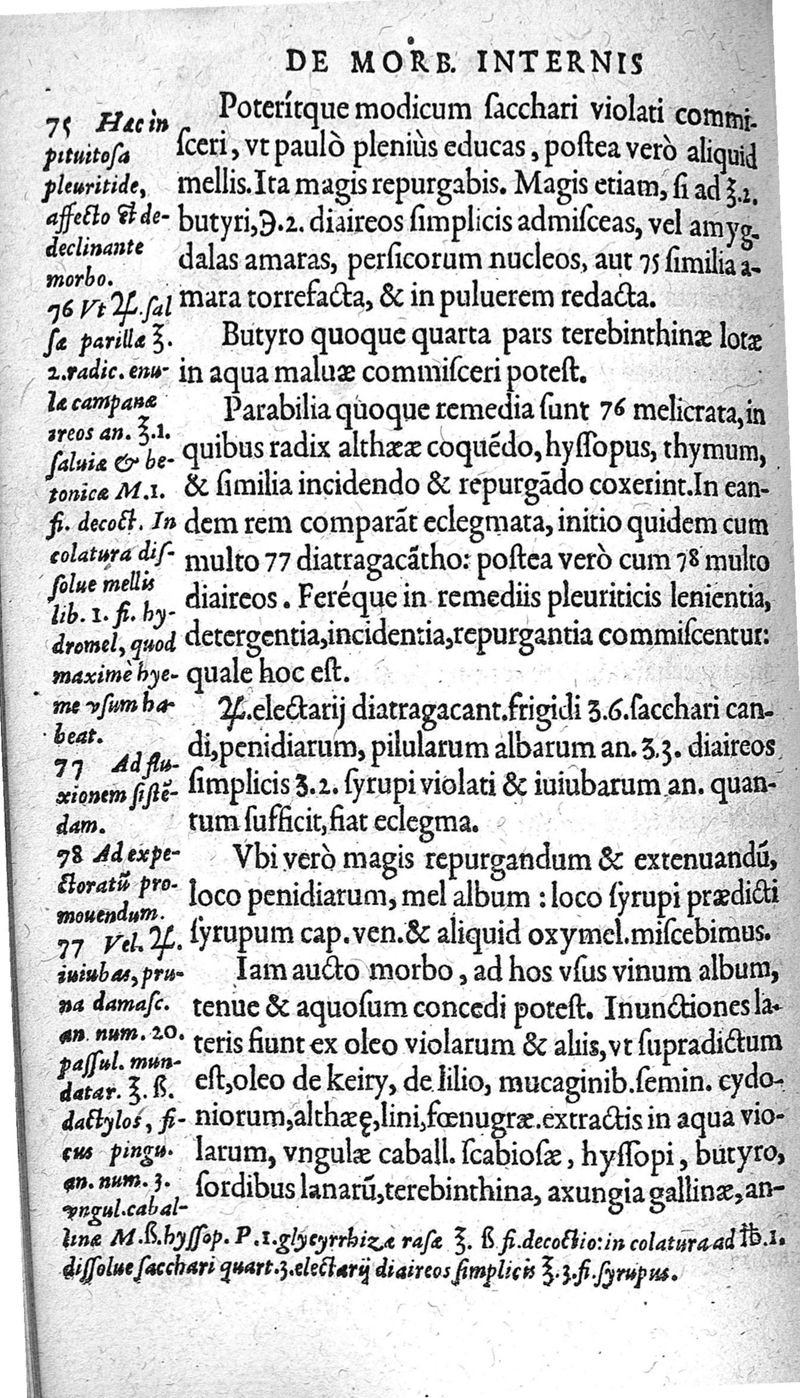 DE MORB. INTERNIS
Poterítque modicum ſacchari violati commi-
ſceri, vt paulò pleniùs educas, poſtea verò aliquid
mellis. Ita magis repurgabis. Magis etiam, ſi ad ℥.2.
butyri, ℈.2. diaireos ſimplicis admiſceas, vel amyg-
dalas amaras, perſicorum nucleos, aut 75 ſimilia a-
mara torrefacta, & in puluerem redacta.
Butyro quoque quarta pars terebinthinæ lotæ
in aqua maluæ commiſceri poteſt.
Parabilia quoque remedia ſunt 76 melicrata, in
quibus radix althææ coquẽdo, hyſſopus, thymum,
& ſimilia incidendo & repurgãdo coxerint. In ean-
dem rem comparãt eclegmata, initio quidem cum
multo 77 diatragacãtho: poſtea verò cum 78 multo
diaireos. Feréque in remediis pleuriticis lenientia,
detergentia, incidentia, repurgantia commiſcentur:
quale hoc eſt.
♃. electarij diatragacant. frigidi ʒ.6. ſacchari can-
di, penidiarum, pilularum albarum an. ʒ.3. diaireos
ſimplicis ʒ.2. ſyrupi violati & iuiubarum an. quan-
tum ſufficit, fiat eclegma.
Vbi verò magis repurgandum & extenuandũ,
loco penidiarum, mel album: loco ſyrupi prædicti
ſyrupum cap. ven. & aliquid oxymel. miſcebimus.
Iam aucto morbo, ad hos vſus vinum album,
tenue & aquoſum concedi poteſt. Inunctiones la-
teris fiunt ex oleo violarum & aliis, vt ſupradictum
eſt, oleo de keiry, de lilio, mucaginib. ſemin. cydo-
niorum, althæę, lini, fœnugræ. extractis in aqua vio-
larum, vngulæ caball. ſcabioſæ, hyſſopi, butyro,
ſordibus lanarũ, terebinthina, axungia gallinæ, an-
75 Hac in
pituitoſa
pleuritide,
affecto & de-
declinante
morbo.
76 Vt ♃. ſal
ſæ parillæ ℥.
2. radic. enu-
læ campanæ
ireos an. ℥.1.
ſaluiæ & be-
tonicæ M.1.
fi. decoct. In
colatura diſ-
ſolue mellis
lib. 1. fi. hy-
dromel, quod
maximè hye-
me vſum ha-
beat.
77 Ad flu-
xionem ſiſtẽ-
dam.
78 Ad expe-
ctoratũ pro-
mouendum.
77 Vel. ♃.
iuiubas, pru-
na damaſc.
an. num. 20.
paſſul. mun-
datar. ℥. ß.
dactylos, fi-
cus pingu.
an. num. 3.
vngul. cabal-
linæ M. ß. hyſſop. P. 1. glycyrrhizæ raſæ ℥. ß fi. decoctio: in colatura ad ℔.1.
diſſolue ſacchari quart. 3. electarij diaireos ſimplicis ℥.3. fi. ſyrupus.